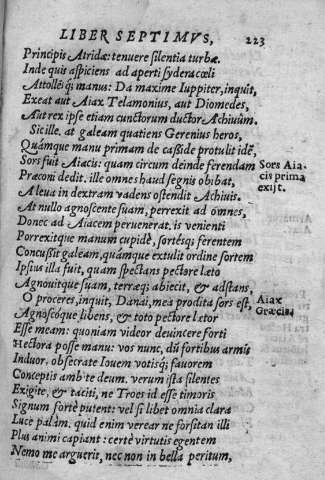 LIBER SEPTIMVS, 223
Principis Atridæ: tenuere silentia turbæ.
Inde quis aspiciens ad aperti sydera cœli
Attollensq; manus: Da maxime Iuppiter, inquit,
Exeat aut Aiax Telamonius, aut Diomedes,
Aut rex ipse etiam cunctorum ductor Achiuûm.
Sic ille. at galeam quatiens Gerenius heros,
Quámque manu primam de casside protulit idẽ,
Sors fuit Aiacis: quam circum deinde ferendam
Præconi dedit. ille omnes haud segnis obibat,
A leua in dextram vadens ostendit Achiuis.
At nullo agnoscente suam, perrexit ad omnes,
Donec ad Aiacem peruenerat. is venienti
Porrexitque manum cupidè, sortésq; ferentem
Concußit galeam, quámque extulit ordine sortem
Ipsius illa fuit, quam spectans pectore læto
Agnouitque suam, terræq; abiecit, & adstans,
O proceres, inquit, Danai, mea prodita sors est,
Agnoscóque libens, & toto pectore lætor
Esse meam: quoniam videor deuincere forti
Hectora posse manu: vos nunc, dũ fortibus armis
Induor, obsecrate Iouem votisq; fauorem
Conceptis amb'te deum. verum ista silentes
Exigite, & taciti, ne Troes id esse timoris
Signum fortè putent: vel si libet omnia clara
Luce palàm. quid enim verear ne forsitan illi
Plus animi capiant: certè virtutis egentem
Nemo me arguerit, nec non in bella peritum,
Sors Aia-
cis prima
exijt.
Aiax
Græcis.